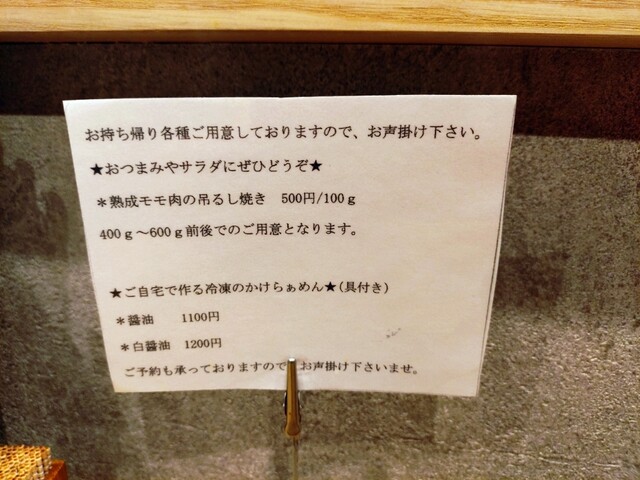 お持ち帰り各種ご用意しておりますので、お声掛け下さい。
★おつまみやサラダにぜひどうぞ★
＊熟成モモ肉の吊るし焼き　500円/100ｇ
400ｇ～600ｇ前後でのご用意となります。
★ご自宅で作る冷凍のかけらぁめん★(具付き)
＊醤油　1100円
＊白醤油　1200円
ご予約も承っておりますので　お声掛け下さいませ。